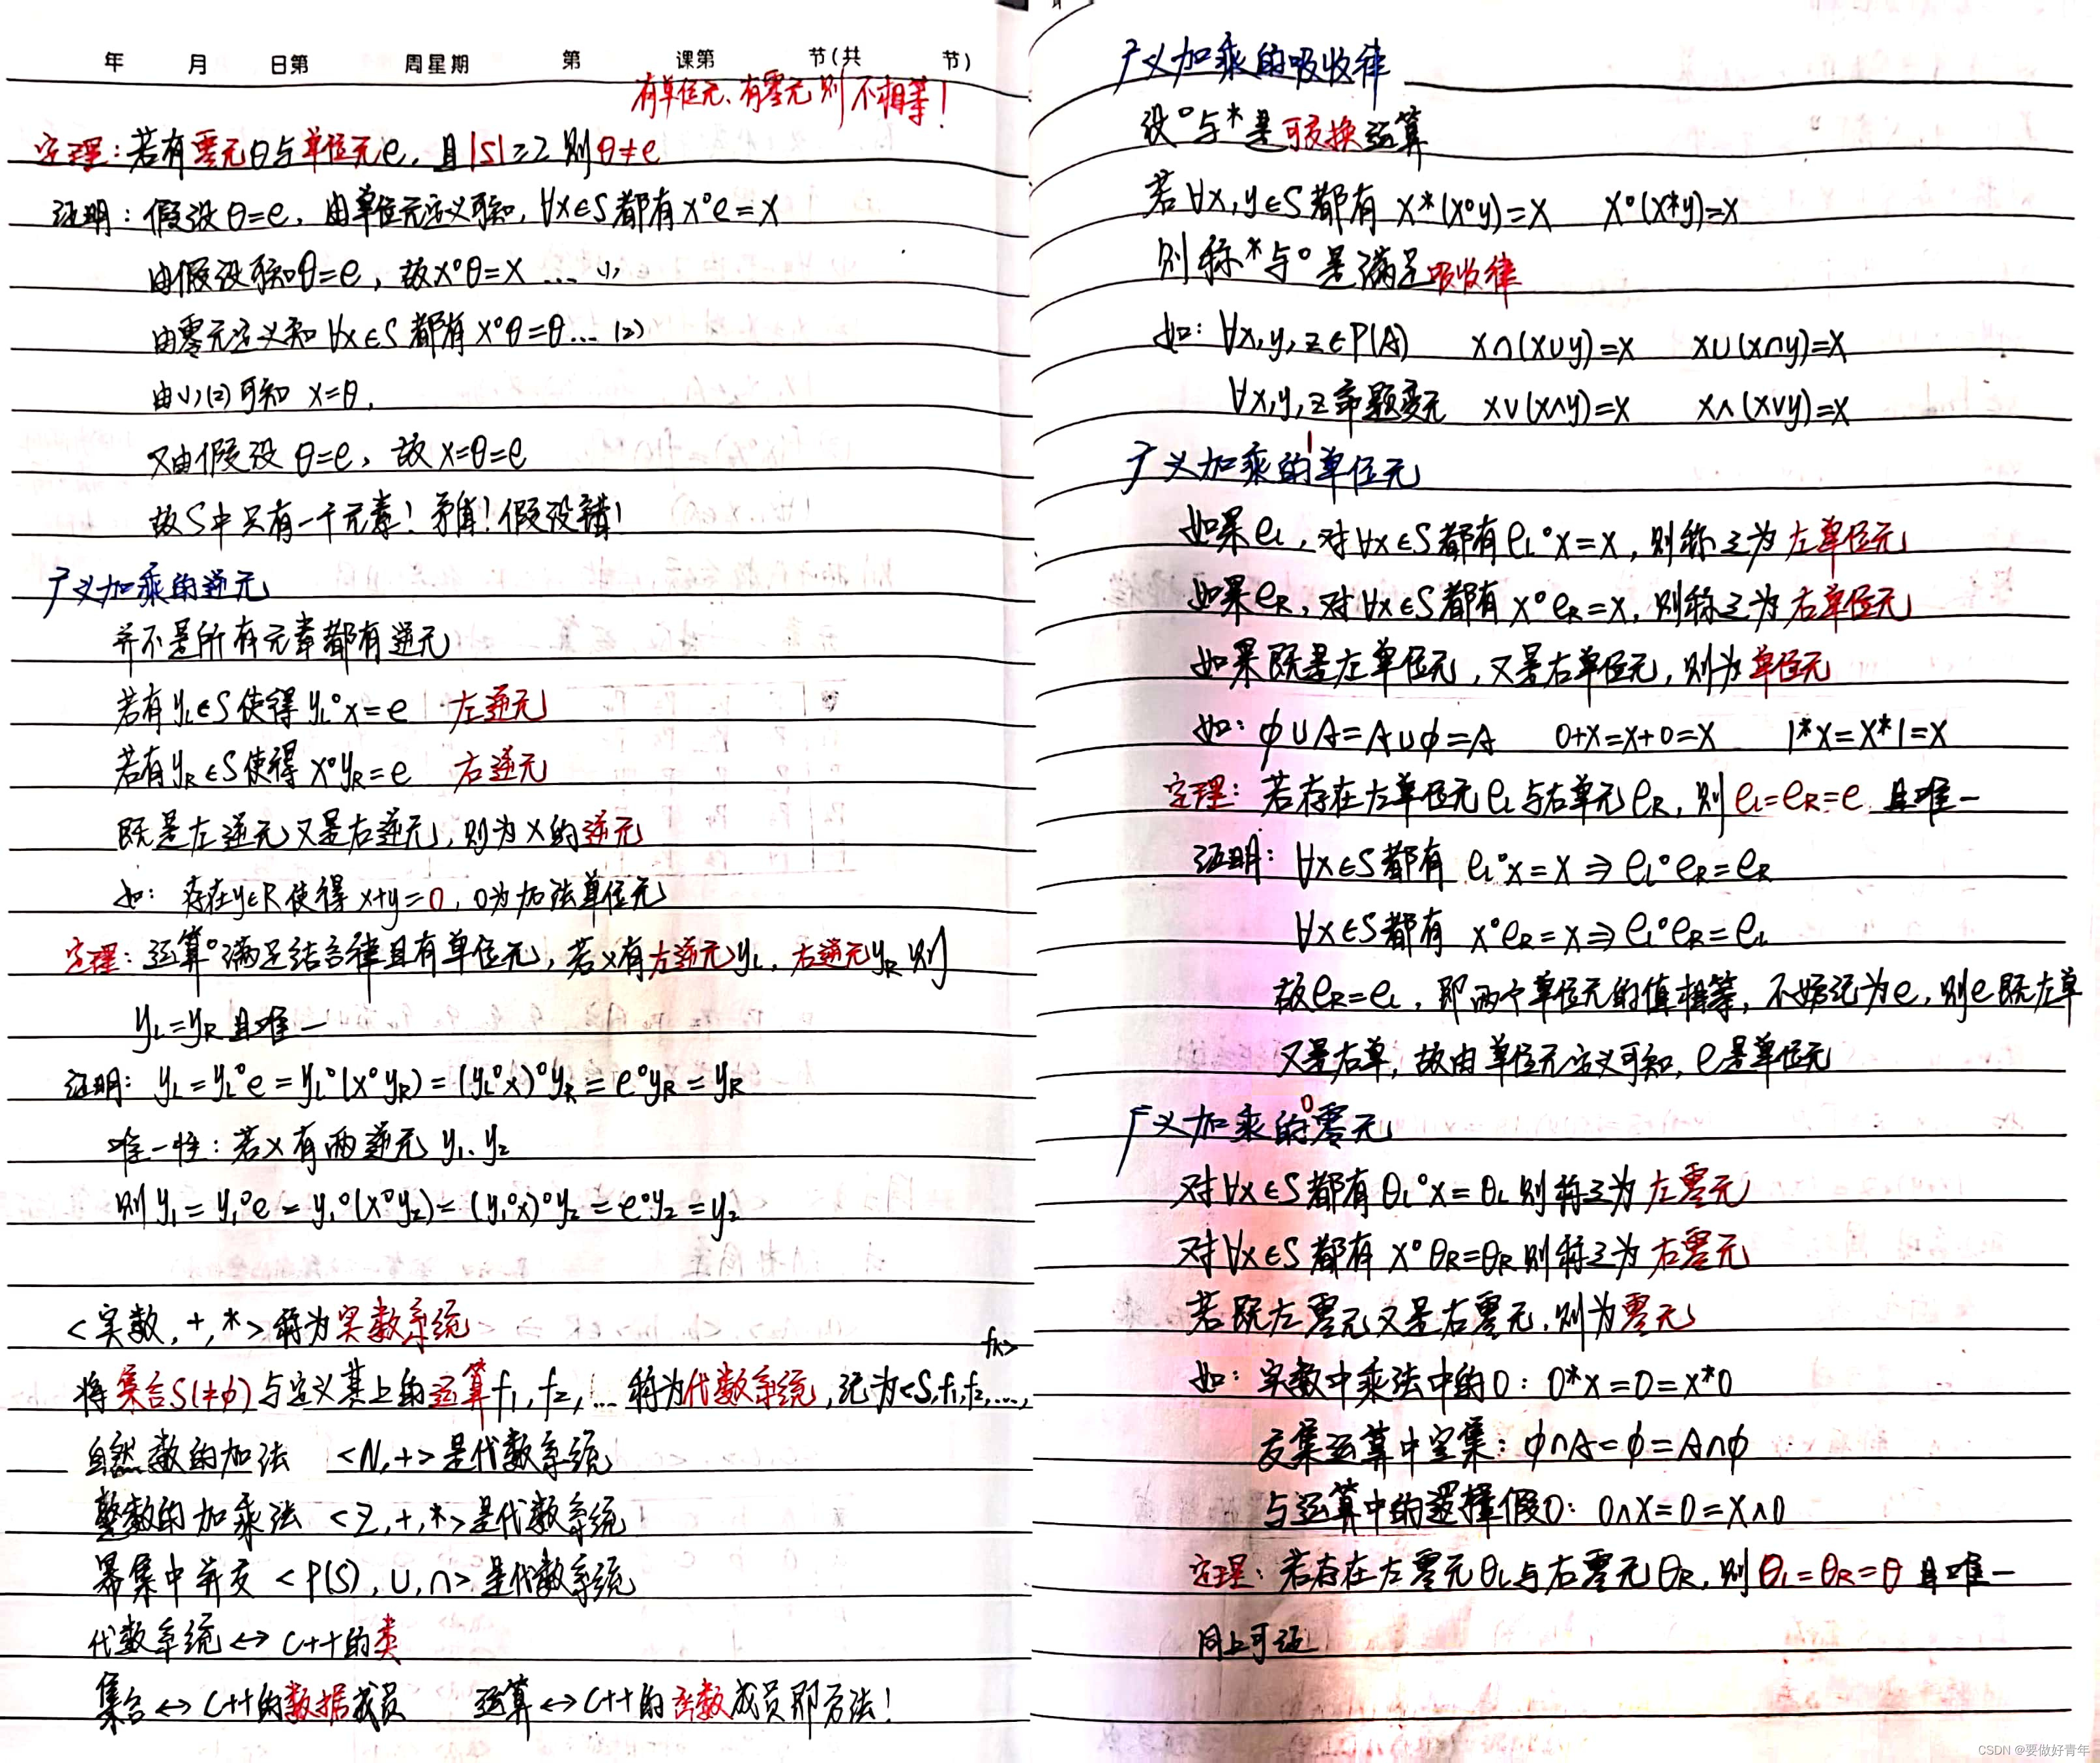 年 月 日第 周星期 第 课第 节(共 节)
有单位元、有零元则不相等!
定理:若有零元θ与单位元e,且|S|≥2则θ≠e
证明:假设θ=e,由单位元定义可知,∀x∈S都有x°e=x
由假设可知θ=e,故x°θ=x ...(1)
由零元定义知∀x∈S都有x°θ=θ...(2)
由(1)(2)可知 x=θ,
又由假设θ=e,故x=θ=e
故S中只有一个元素!矛盾!假设错!
广义加乘的逆元
并不是所有元素都有逆元
若有yL∈S使得yL°x=e 左逆元
若有yR∈S使得x°yR=e 右逆元
既是左逆元又是右逆元,则为x的逆元
如:存在y∈R使得x+y=0,0为加法单位元
定理:运算°满足结合律且有单位元,若x有左逆元yL,右逆元yR则
yL=yR且唯一
证明:yL=yL°e=yL°(x°yR)=(yL°x)°yR=e°yR=yR
唯一性:若x有两逆元y1、y2
则y1=y1°e=y1°(x°y2)=(y1°x)°y2=e°y2=y2
<实数,+,*>称为实数系统
将集合S(≠φ)与定义其上的运算f1,f2,...称为代数系统,记为<S,f1,f2,...,fk>
自然数的加法 <N,+>是代数系统
整数的加乘法 <Z,+,*>是代数系统
幂集中并交 <P(S),∪,∩>是代数系统
代数系统↔C++的类
集合↔C++的数据成员 运算↔C++的函数成员即方法!
广义加乘的吸收律
设°与*是可交换运算
若∀x,y∈S都有 x*(x°y)=x x°(x*y)=x
则称*与°是满足吸收律
如:∀x,y,z∈P(A) x∩(x∪y)=x x∪(x∩y)=x
∀x,y,z命题变元 x∨(x∧y)=x x∧(x∨y)=x
广义加乘的单位元
1
如果eL,对∀x∈S都有eL°x=x,则称之为左单位元
如果eR,对∀x∈S都有x°eR=x,则称之为右单位元
如果既是左单位元,又是右单位元,则为单位元
如:φ∪A=A∪φ=A 0+x=x+0=x 1*x=x*1=x
定理:若存在左单位元eL与右单元eR,则eL=eR=e 且唯一
证明:∀x∈S都有 eL°x=x⇒eL°eR=eR
∀x∈S都有 x°eR=x⇒eL°eR=eL
故eR=eL,即两个单位元的值相等,不妨记为e,则e既左单
又是右单,故由单位元定义可知,e是单位元
广义加乘的零元
0
对∀x∈S都有θL°x=θL则称之为左零元
对∀x∈S都有x°θR=θR则称之为右零元
若既左零元又是右零元,则为零元
如:实数中乘法中的0:0*x=0=x*0
交集运算中空集:φ∩A=φ=A∩φ
与运算中的选择假0:0∧x=0=x∧0
定理:若存在左零元θL与右零元θR,则θL=θR=θ且唯一
同上可证
CSDN @要做好青年